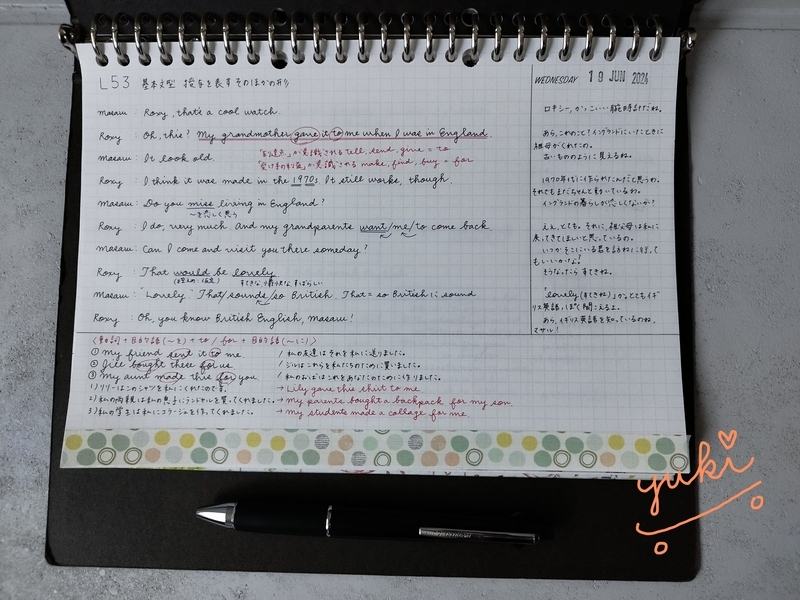 L53 基本文型 授与を表すそのほかの形
WEDNESDAY 19 JUN 2024
Masaru : Roxy, that's a cool watch.
Roxy : Oh, this? My grandmother gave it to me when I was in England.
Masaru : It look old.
"到達点"が意識される tell, send, give = to
"受け手の利益"が意識される make, find, buy = for
Roxy : I think it was made in the 1970s. It still works, though.
Masaru : Do you miss living in England?
〜を恋しく思う
Roxy : I do, very much. And my grandparents want/me/to come back.
Masaru : Can I come and visit you there someday?
Roxy : That would be lovely
すてきな すばらしい
Masaru : "Lovely." That/sounds/so British. That = so British に sound
Roxy : Oh, you know British English, Masaru!
ロキシー、かっこいい腕時計だね。
あら、これのこと?イングランドにいたときに
祖母がくれたの。
古いもののように見えるね。
1970年代に作られたんだと思うわ。
それでもまだちゃんと動いているわ。
イングランドの暮らしが恋しくないかい?
ええ、とても。それに、祖父母は私に
戻ってきてほしいと思っているの。
いつかそこにいる君を訪ねに行って
もいいかな?
そうなったらすてきね。
"lovely(すてきね)"かぁ、とてもイギ
リス英語っぽく聞こえるよ。
あら、イギリス英語を知っているのね、
マサル!
〈動詞 + 目的語(〜を) + to / for + 目的語(〜に)〉
① My friend sent it to me. / 私の友達はそれを私に送りました。
② Jill bought these for us. / ジルはこれらを私たちのために買いました。
③ My aunt made this for you / 私のおばはこれをあなたのために作りました。
1) リリーはこのシャツを私にくれたのです。 → Lily gave this shirt to me.
2) 私の両親は私の息子にランドセルを買ってくれました。 → My parents bought a backpack for my son.
3) 私の学生は私にコラージュを作ってくれました。 → My students made a collage for me.
yuki